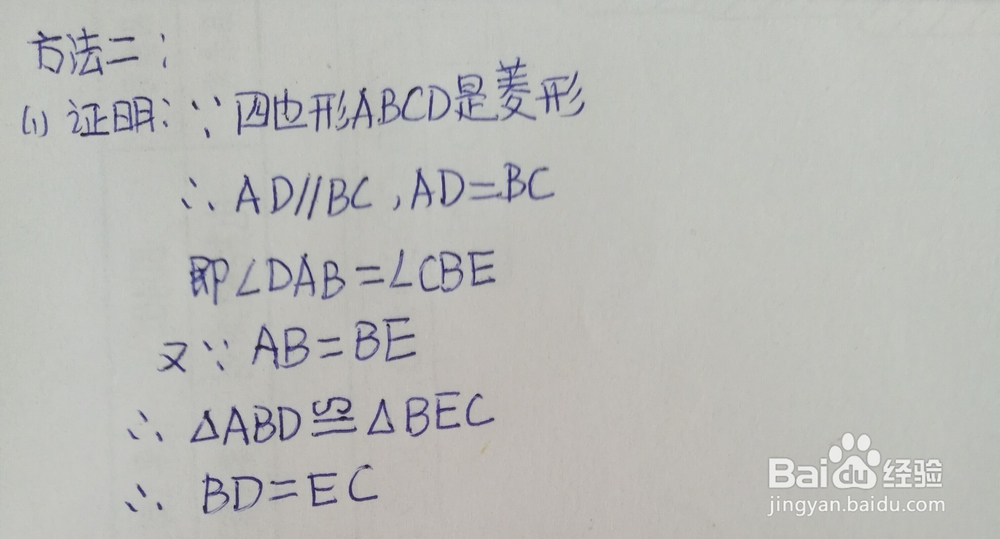 方法二：
(1) 证明：∵四边形ABCD是菱形
∴AD//BC，AD=BC
即∠DAB=∠CBE
又∵AB=BE
∴△ABD≌△BEC
∴BD=EC
Baidu经验
jingyan.baidu.com